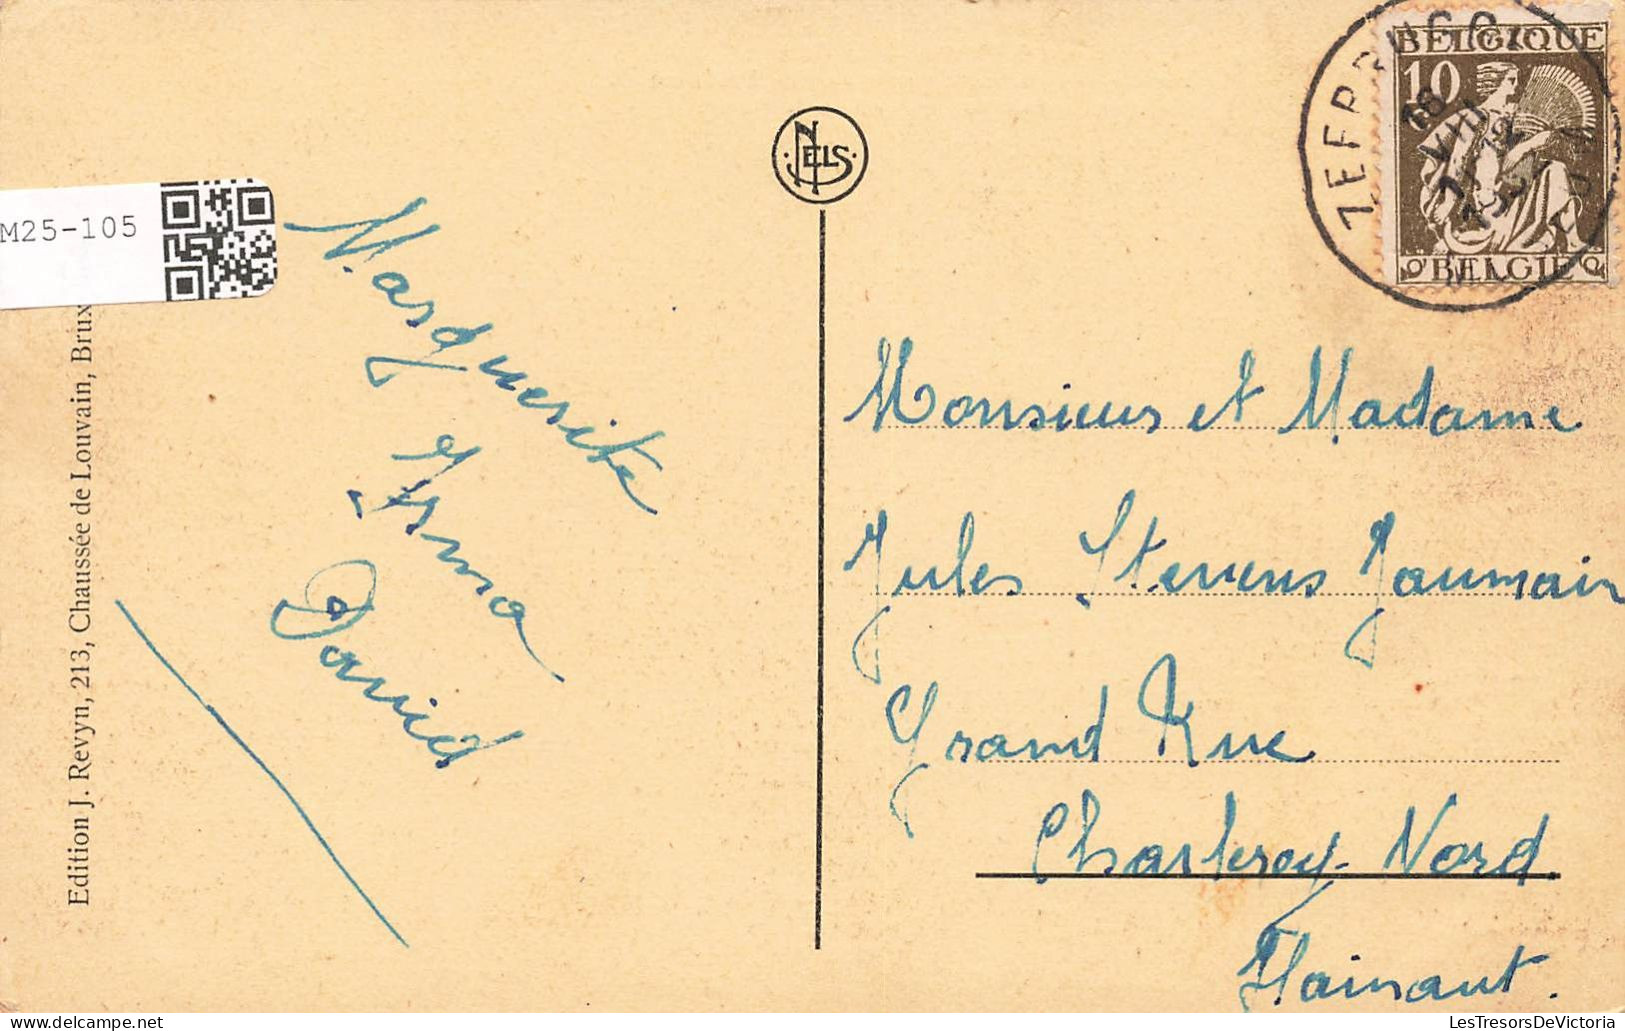 M25-105
Edition J. Revyn, 213, Chaussée de Louvain, Brux
Marguerite
Irma
David
NELS
BELGIQUE
10
BELGIE
Monsieur et Madame
Jules Stevens Jaumain
Grand Rue
Charleroy-Nord
Hainaut.
LesTresorsDeVictoria